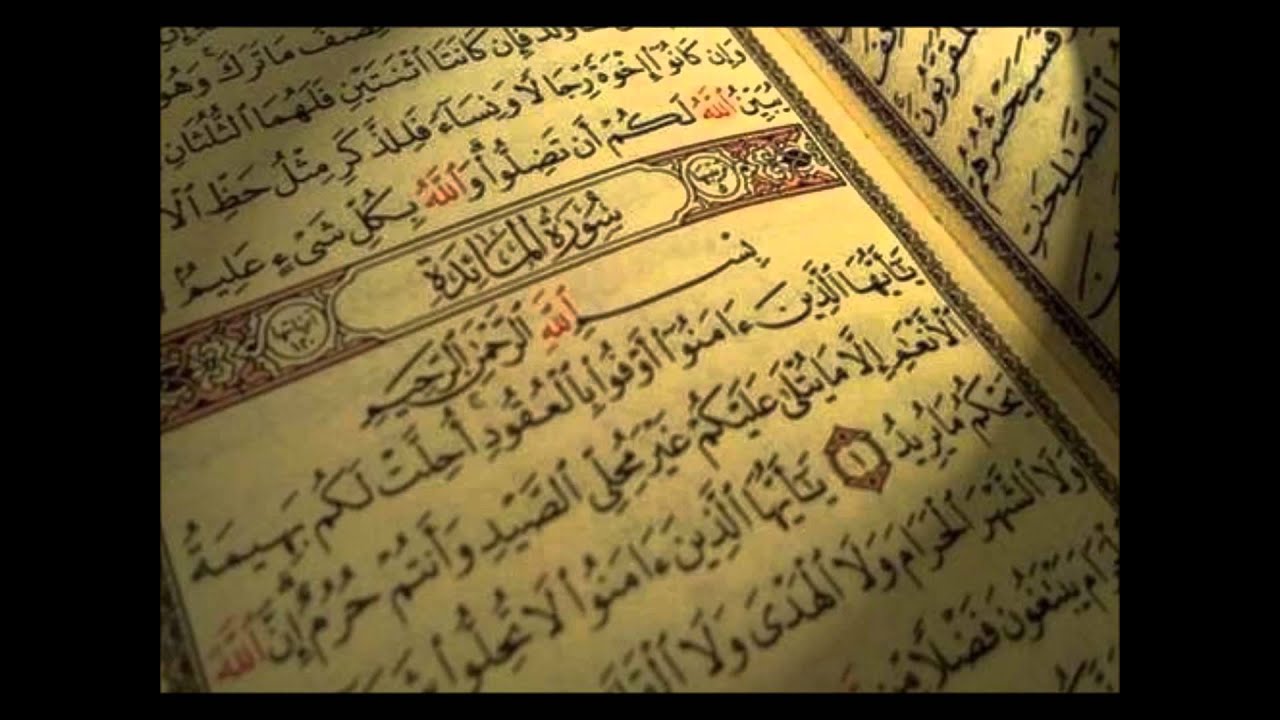 نِصْفُ مَا تَرَكَ وَهُوَ
وَلَدٌ فَإِن كَانَتَا ٱثْنَتَيْنِ فَلَهُمَا ٱلثُّلُثَانِ
وَإِن كَانُوٓا۟ إِخْوَةً رِّجَالًا وَنِسَآءً فَلِلذَّكَرِ مِثْلُ حَظِّ ٱلْأ
يُبَيِّنُ ٱللَّهُ لَكُمْ أَن تَضِلُّوا۟ وَٱللَّهُ بِكُلِّ شَىْءٍ عَلِيمٌۢ
سُورَةُ المَائِدَةِ
بِسْمِ ٱللَّهِ ٱلرَّحْمَٰنِ ٱلرَّحِيمِ
يَٰٓأَيُّهَا ٱلَّذِينَ ءَامَنُوٓا۟ أَوْفُوا۟ بِٱلْعُقُودِ أُحِلَّتْ لَكُم بَهِيمَةُ
ٱلْأَنْعَٰمِ إِلَّا مَا يُتْلَىٰ عَلَيْكُمْ غَيْرَ مُحِلِّى ٱلصَّيْدِ وَأَنتُمْ حُرُمٌ إِنَّ ٱللَّهَ
يَحْكُمُ مَا يُرِيدُ ١ يَٰٓأَيُّهَا ٱلَّذِينَ ءَامَنُوا۟ لَا تُحِلُّوا۟
وَلَا ٱلشَّهْرَ ٱلْحَرَامَ وَلَا ٱلْهَدْىَ وَلَا
يَبْتَغُونَ فَضْلًا مِّن
ٱلْمُقَرَّبُونَ
فَسَيَحْشُرُهُمْ
ٱلصَّٰلِحَٰتِ